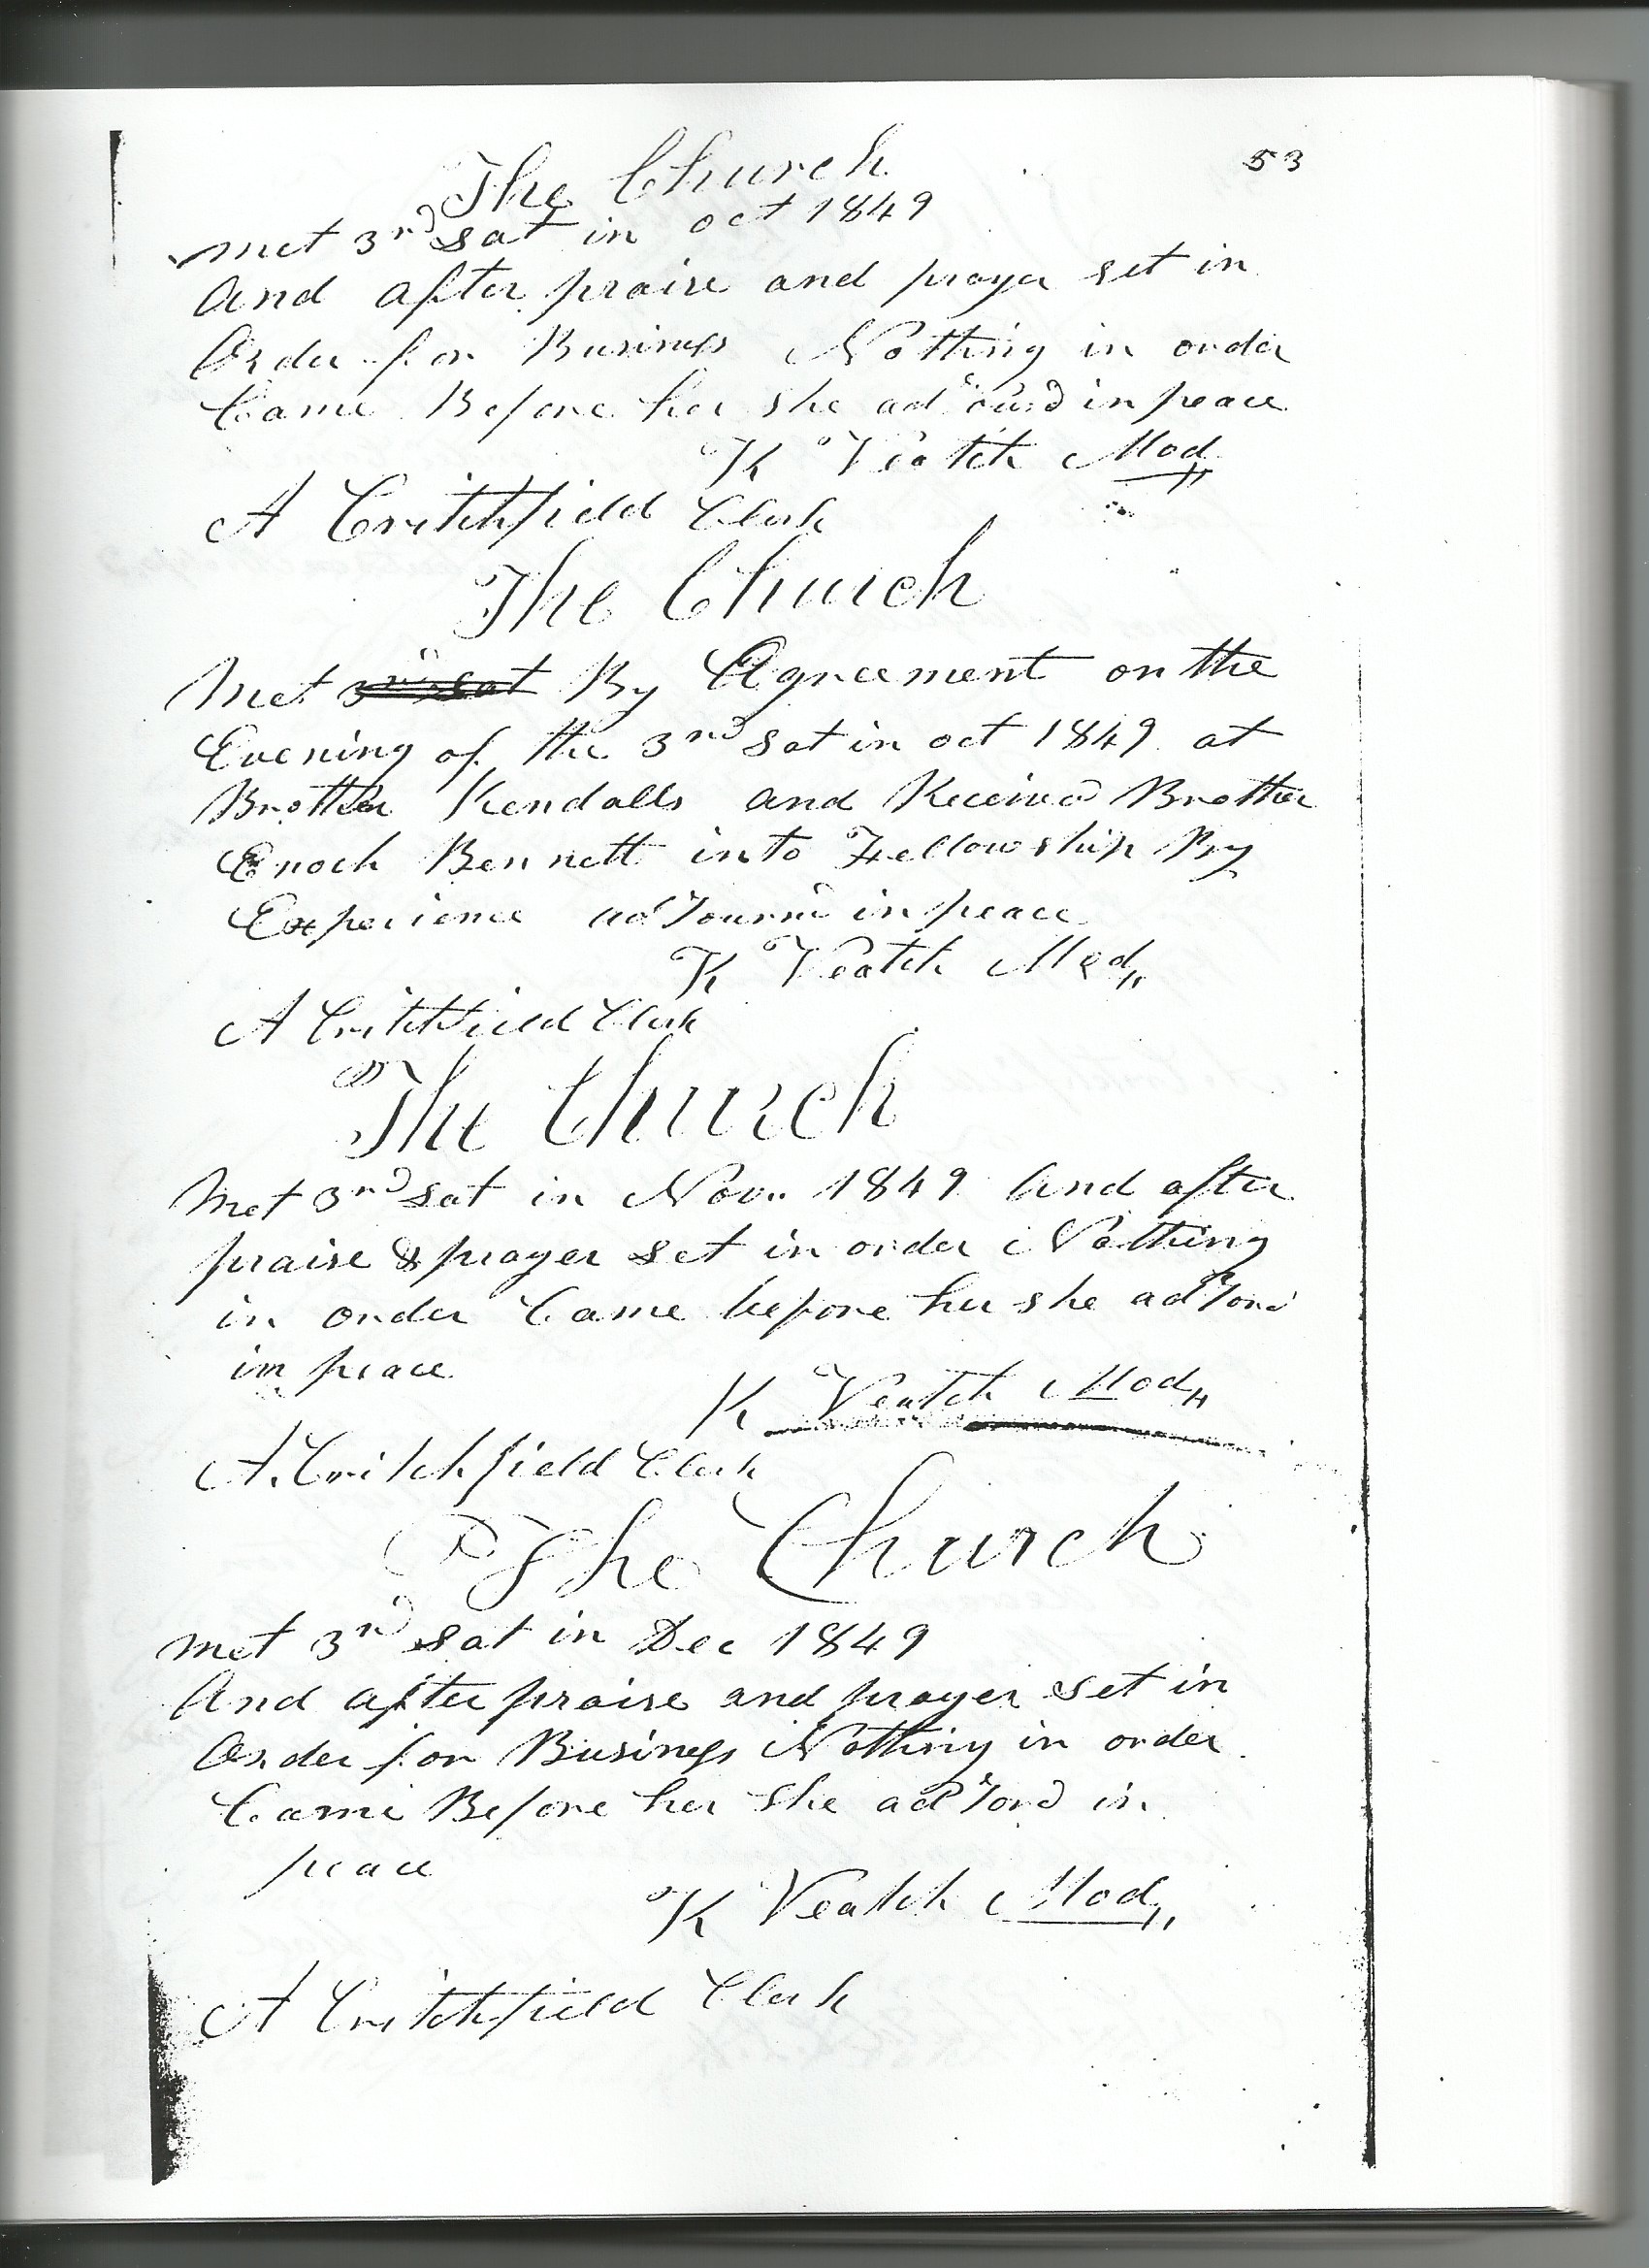 53
The Church
met 3rd sat in oct 1849
And after praise and prayer set in
Order for Business Nothing in order
Came Before her she ad Jourd in peace
K Veatch Mod
A Critchfield Clerk
The Church
Met 3rd sat By Agreement on the
Evening of the 3rd sat in oct 1849 at
Brother Kendalls and Received Brother
Enoch Bennett into Fellowship By
Experience ad Journd in peace
K Veatch Mod
A Critchfield Clerk
The Church
Met 3rd sat in Nov. 1849 And after
praise & prayer set in order Nothing
in order Came before her she ad Jond
in peace
K Veatch Mod
A. Critchfield Clerk
The Church
met 3rd sat in Dec 1849
And after praise and prayer set in
Order for Business Nothing in order
Came Before her she ad Jord in
peace
K Veatch Mod
A Critchfield Clerk